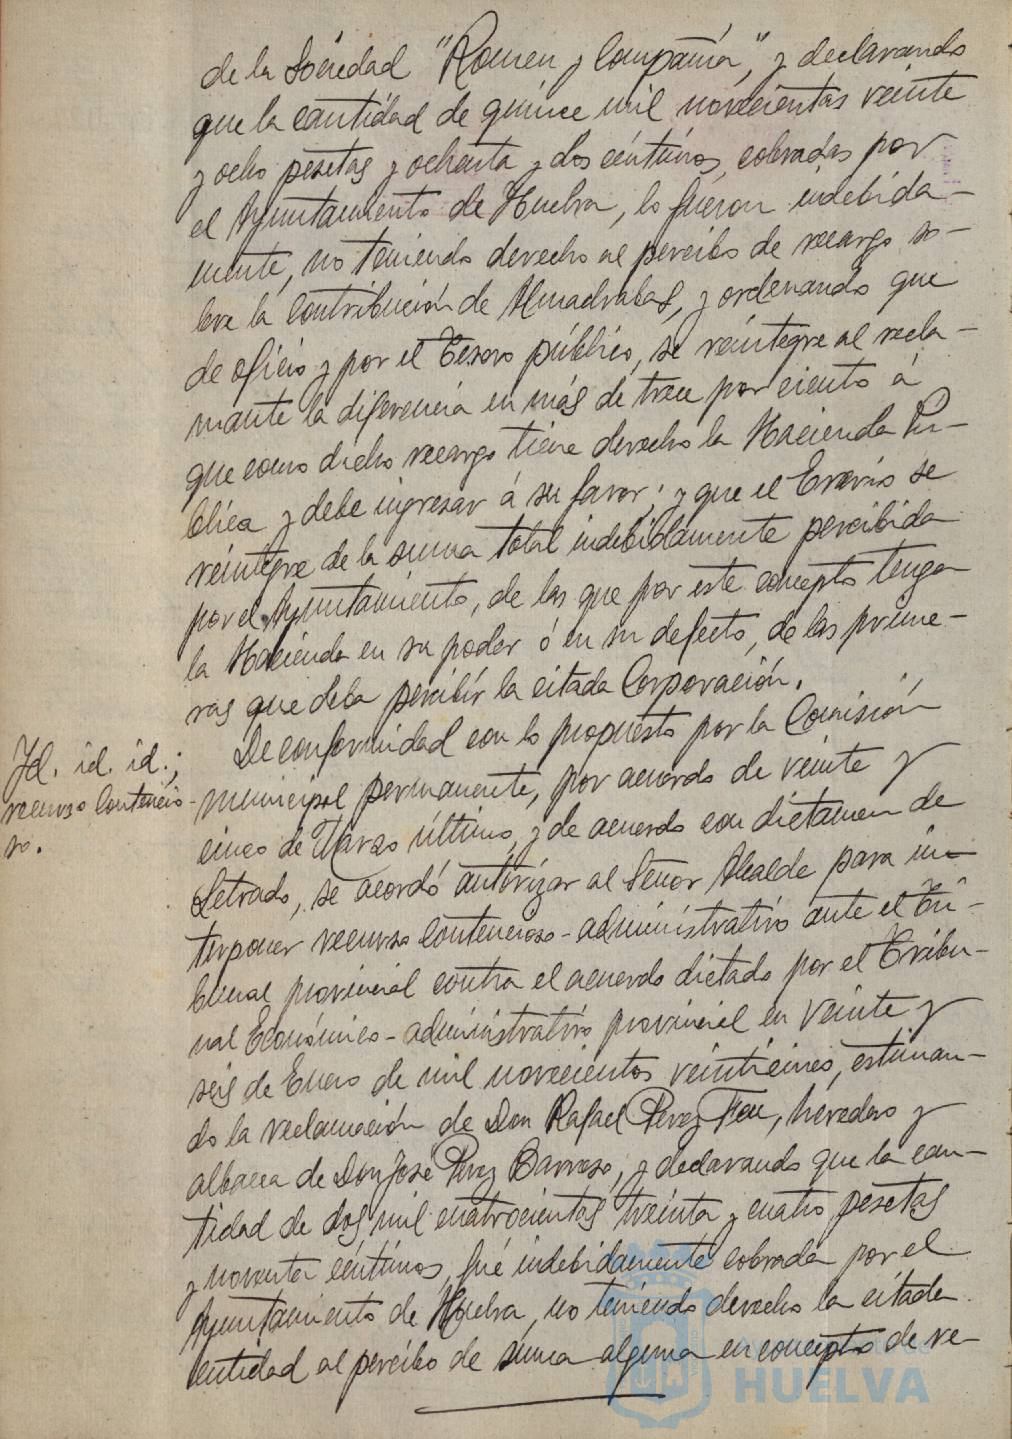 de la Sociedad "Romeu y Compañía", y declarando
que la cantidad de quince mil novecientas veinte
y ocho pesetas y ochenta y dos céntimos, cobradas por
el Ayuntamiento de Huelva, lo fueron indebida-
mente, no teniendo derecho al percibo de recargo so-
bre la Contribución de Almadrabas, y ordenando que
de oficio y por el Tesoro público, se reintegre al recla-
mante la diferencia en más de trece por ciento á
que como dicho recargo tiene derecho la Hacienda Pú-
blica y debe ingresar á su favor; y que el Erario se
reintegre de la suma total indebidamente percibida
por el Ayuntamiento, de las que por este concepto tenga
la Hacienda en su poder ó en su defecto, de las prime-
ras que deba percibir la citada Corporación.
Id. id. id.;
recurso Contencio-
so.
De conformidad con lo propuesto por la Comisión
municipal permanente, por acuerdo de veinte y
cinco de Marzo último, y de acuerdo con dictamen de
Letrado, se acordó autorizar al Señor Alcalde para in-
terponer recurso Contencioso-administrativo ante el Tri-
bunal provincial contra el acuerdo dictado por el Tribu-
nal Económico-administrativo provincial en veinte y
seis de Enero de mil novecientos veinticinco, estiman-
do la reclamación de Don Rafael Perez Feu, heredero y
albacea de Don José Perez Barroso, y declarando que la can-
tidad de dos mil cuatrocientas treinta y cuatro pesetas
y noventa céntimos, fué indebidamente cobrada por el
Ayuntamiento de Huelva, no teniendo derecho la citada
entidad al percibo de suma alguna en concepto de re-
HUELVA